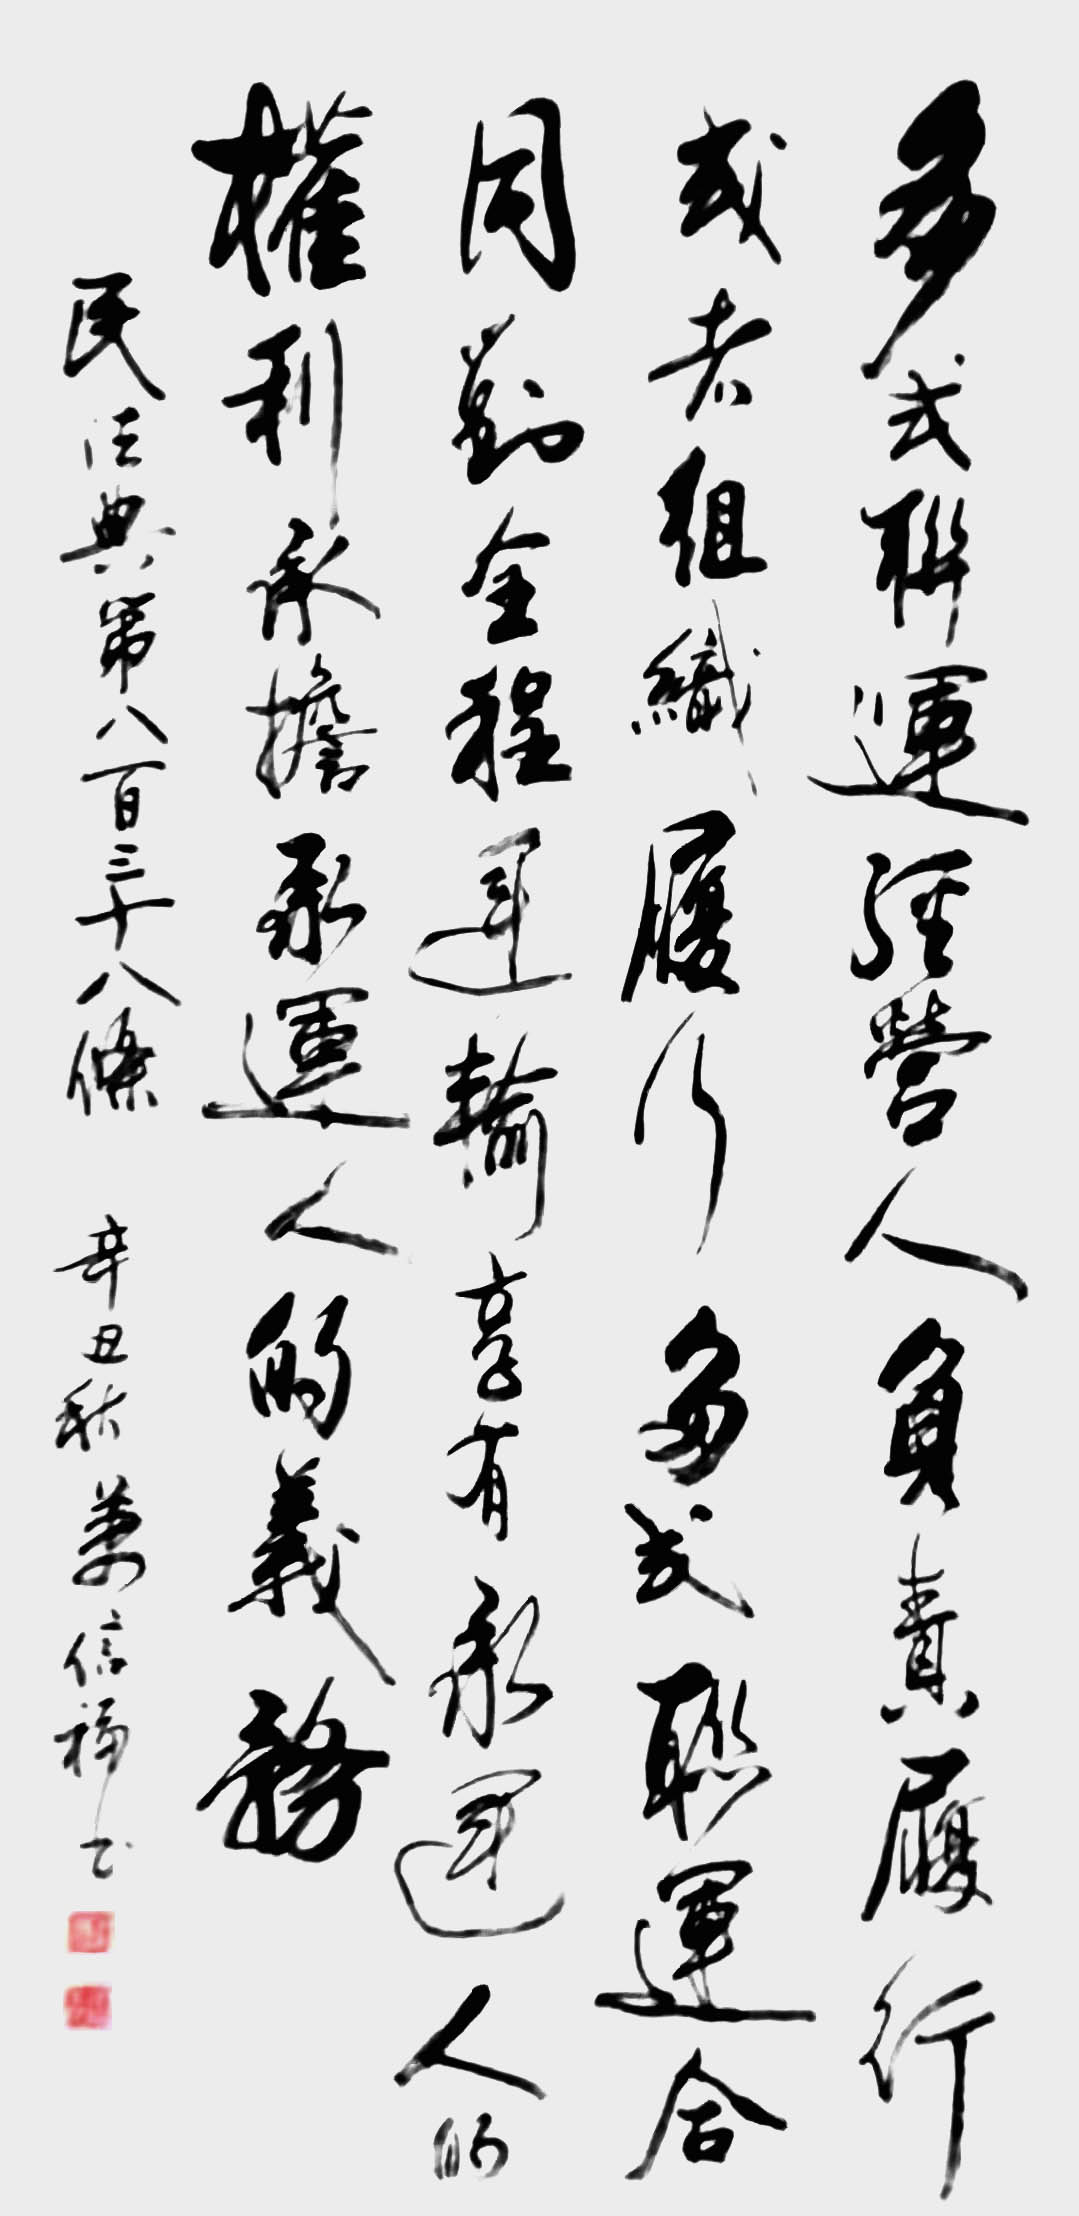 多式聯運經營人負責履行
或者組織履行多式聯運合
同對全程運輸享有承運人的
權利承擔承運人的義務
民法典第八百三十八條 辛丑秋 萬信福书